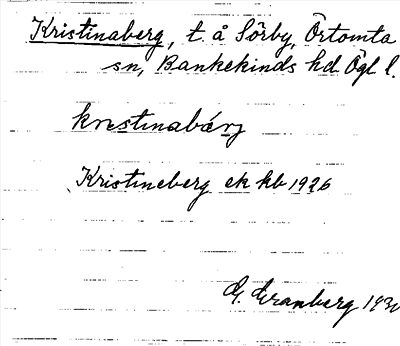 Kristinaberg, t. å Sörby, Örtomta
sn, Bankekinds hd Ögl l.
kristinabárj
Kristineberg ek kb 1926
G. Granberg 1930